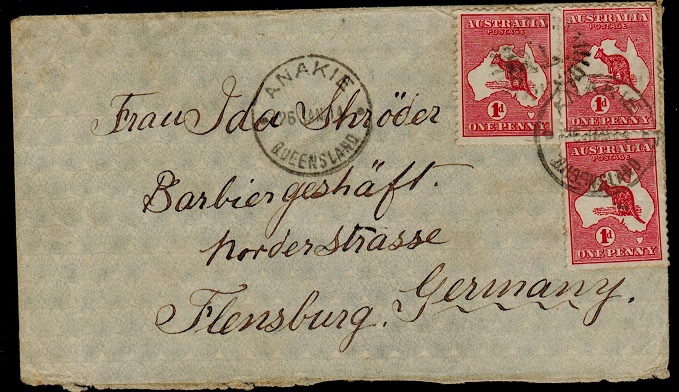 AUSTRALIA
POSTAGE
1d
ONE PENNY
AUSTRALIA
POSTAGE
1d
ONE PENNY
ANAKIE
26 JAN 14
QUEENSLAND
ANAKIE
QUEENSLAND
AUSTRALIA
POSTAGE
1d
ONE PENNY
Frau Ida Shröder
Barbiergeshäft.
Norderstrasse
Flensburg. Germany.